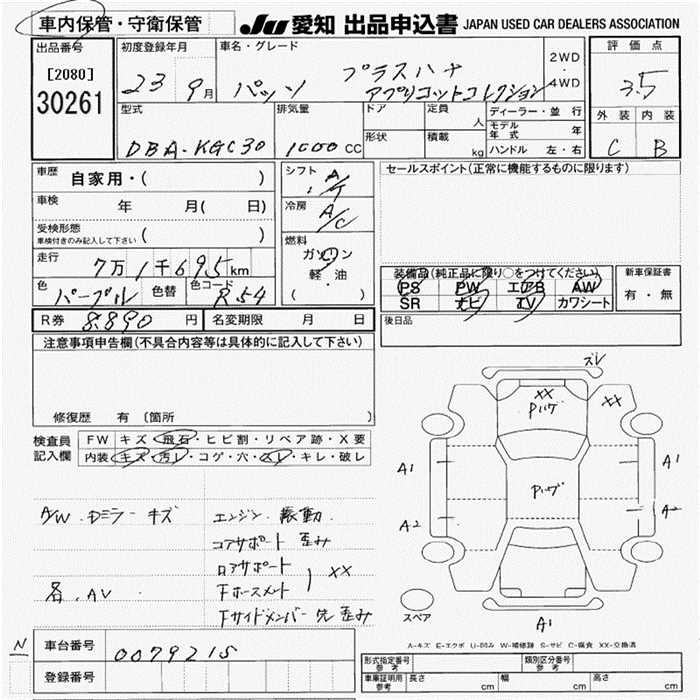 車内保管・守衛保管
JU 愛知 出品申込書 JAPAN USED CAR DEALERS ASSOCIATION
出品番号
[2080]
30261
初度登録年月
23 9月
車名・グレード
パッソ プラスハナ
アプリコットコレクション
2WD
・
4WD
評価点
3.5
外装 内装
C B
型式
DBA-KGC30
排気量
1000 CC
ドア
形状
定員
人
積載
kg
ディーラー・並行
モデル年式 年
ハンドル 左・右
車歴 自家用・( )
車検 年 月( 日)
受検形態
車検付きのみ記入して下さい ( )
走行 7万1千695km
色 パープル 色替 色コード R54
シフト A/T
冷房 A/C
燃料
ガソリン
軽・油
( )
セールスポイント(正常に機能するものに限ります)
装備品(純正品に限り○をつけてください)
PS PW エアB AW
SR ナビ TV カワシート
新車保証書
有・無
後日品
R券 8,890円 名変期限 月 日
注意事項申告欄(不具合内容等は具体的に記入して下さい)
修復歴 有 〔箇所 〕
検査員
記入欄
FW キズ・飛石・ヒビ割・リペア跡・X要
内装 キズ・汚レ・コゲ・穴・スレ・キレ・破レ
A/W. Dミラー キズ
各. AV
エンジン 振動
コアサポート 歪み
ロアサポート
下ホースメント
) XX
下サイドメンバー先 歪み
ズレ
XX
Pハゲ
XX
Pハゲ
A1
A2
A1
A2
A1
スペア
A-キズ E-エクボ U-凹み W-補修跡 S-サビ C-腐食 XX-交換済
N 車台番号 0079215
登録番号
形式指定番号
参考
類別区分番号
参考
車庫証明用
参考
長さ cm 幅 cm 高さ cm